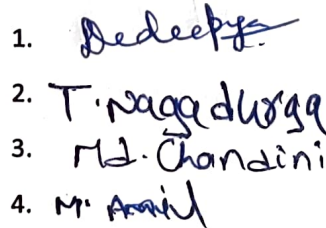 1. Dedeepya
2. T. Nagadurga
3. Md. Chandini
4. M.